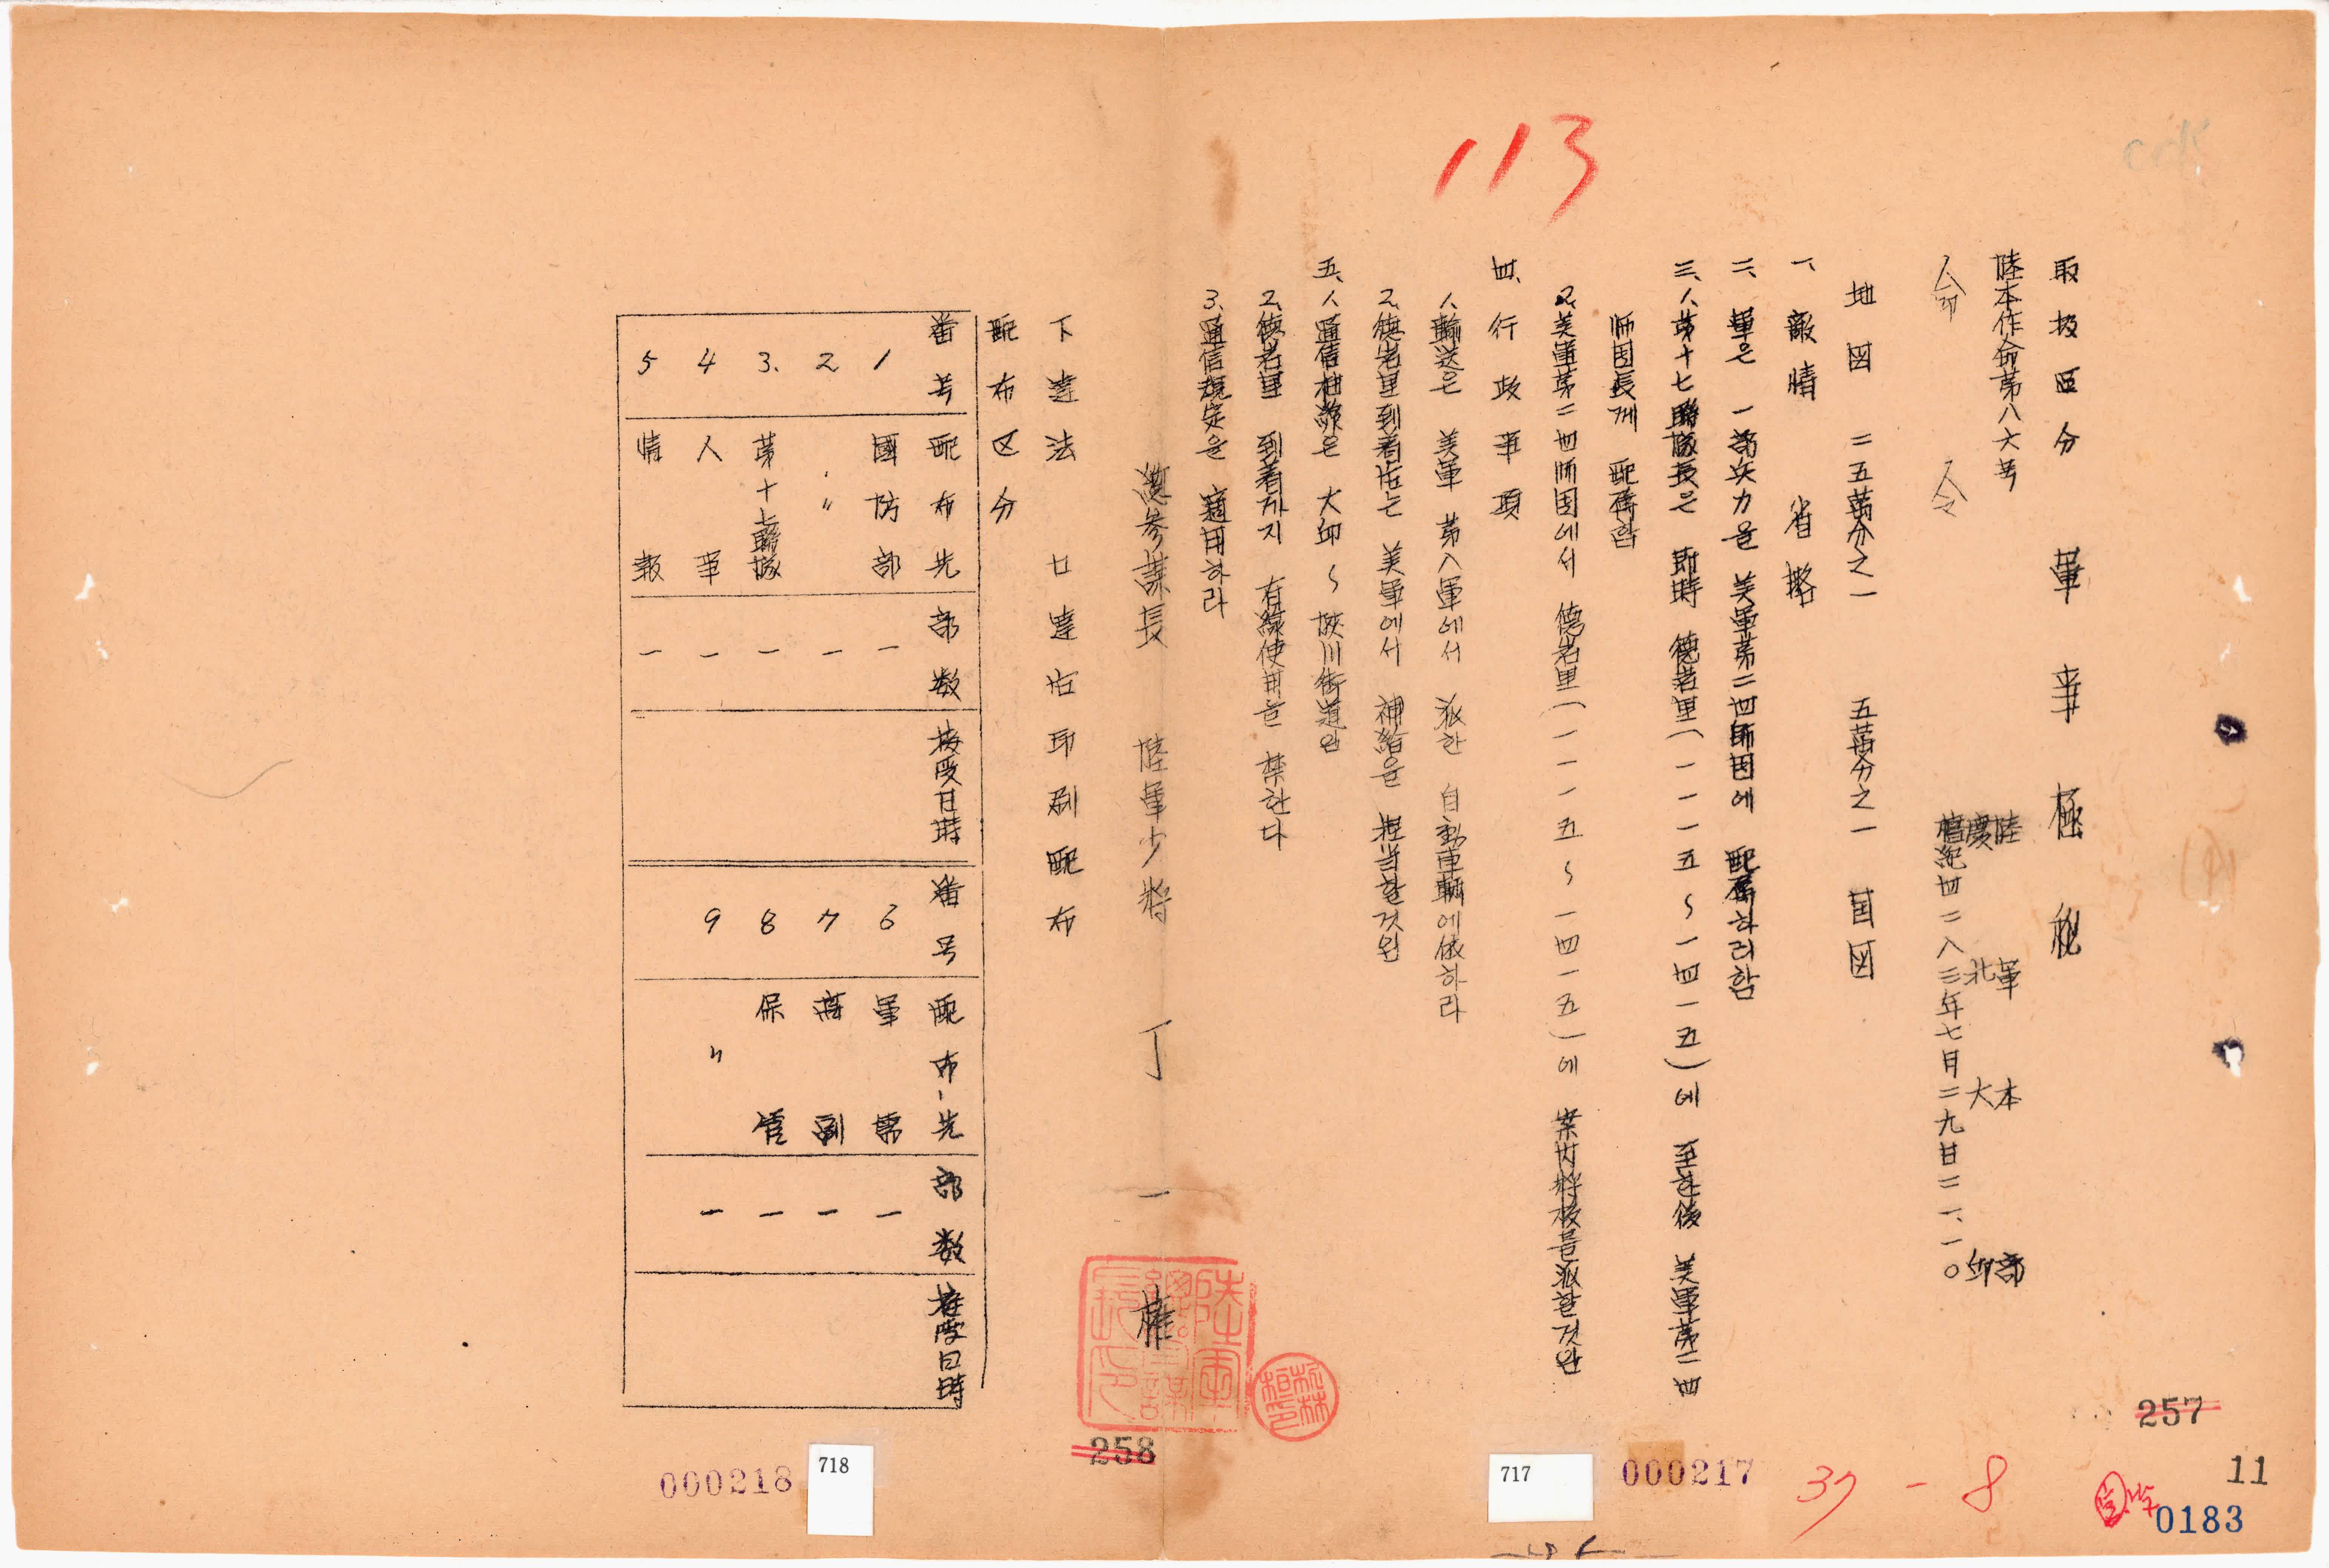 113
取扱区分 軍事極秘
陸本作命第八六号
命 令
陸軍本部
慶北大邱
檀紀四二八三年七月二九日二一、一〇
地図 二五萬分之一 五萬分之一 国図
一、敵情 省略
二、軍은 一部兵力을 美軍第二四師団에 配属하려함
三、1、第十七聯隊長은 即時 德岩里(一一一五~一四一五)에 至한後 美軍第二四
師団長게 配属함
2、美軍第二四師団에서 德岩里(一一一五~一四一五)에 案内將校를派할것임
四、行政事項
1、輸送은 美軍 第八軍에서 派한 自動車輛에依하라
2、德岩里到着后는 美軍에서 補給을 担当할것임
五、1、通信枢軸은 大邱~陜川街道임
2、德岩里 到着까지 有線使用을 禁한다
3、通信規定을 適用하라
總参謀長 陸軍少將 丁一權
下達法 口達后印刷配布
配布区分
番号 配布先 部数 接受日時
1 國防部 一
2 〃 一
3. 第十七聯隊 一
4 人事 一
5 情報 一
番号 配布先 部数 接受日時
6 軍需 一
7 蔣副 一
8 保管 一
9 〃 一
257
258
717
718
000217
000218
37-8
11
0183